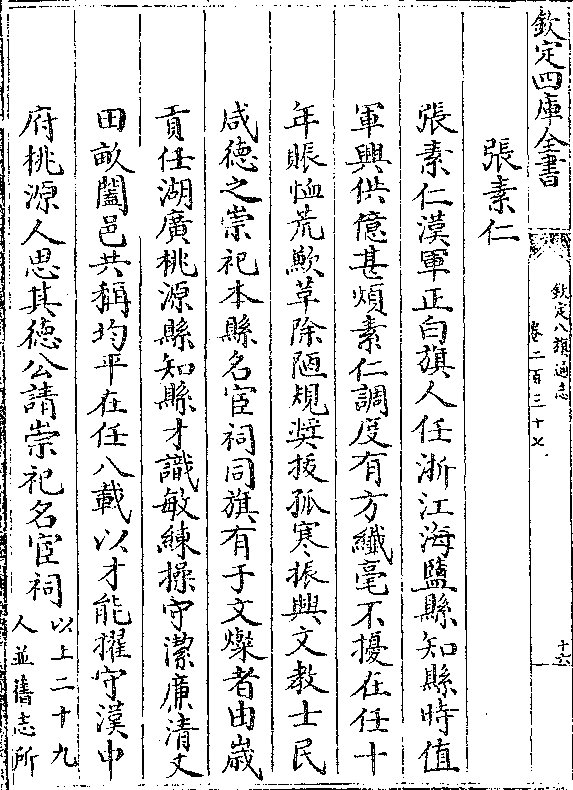 欽定四庫全書
欽定八旗通志
卷二百三十七
十六
張素仁
張素仁漢軍正白旗人任浙江海鹽縣知縣時值
軍興供億甚煩素仁調度有方纖毫不擾在任十
年賑恤荒歉革除陋規奬拔孤寒振興文教士民
咸德之崇祀本縣名宦祠同旗有于文燦者由嵗
貢任湖廣桃源縣知縣才識敏練操守潔廉清丈
田畝闔邑共稱均平在任八載以才能擢守漢中
府桃源人思其德公請崇祀名宦祠
以上二十九
人並舊志所